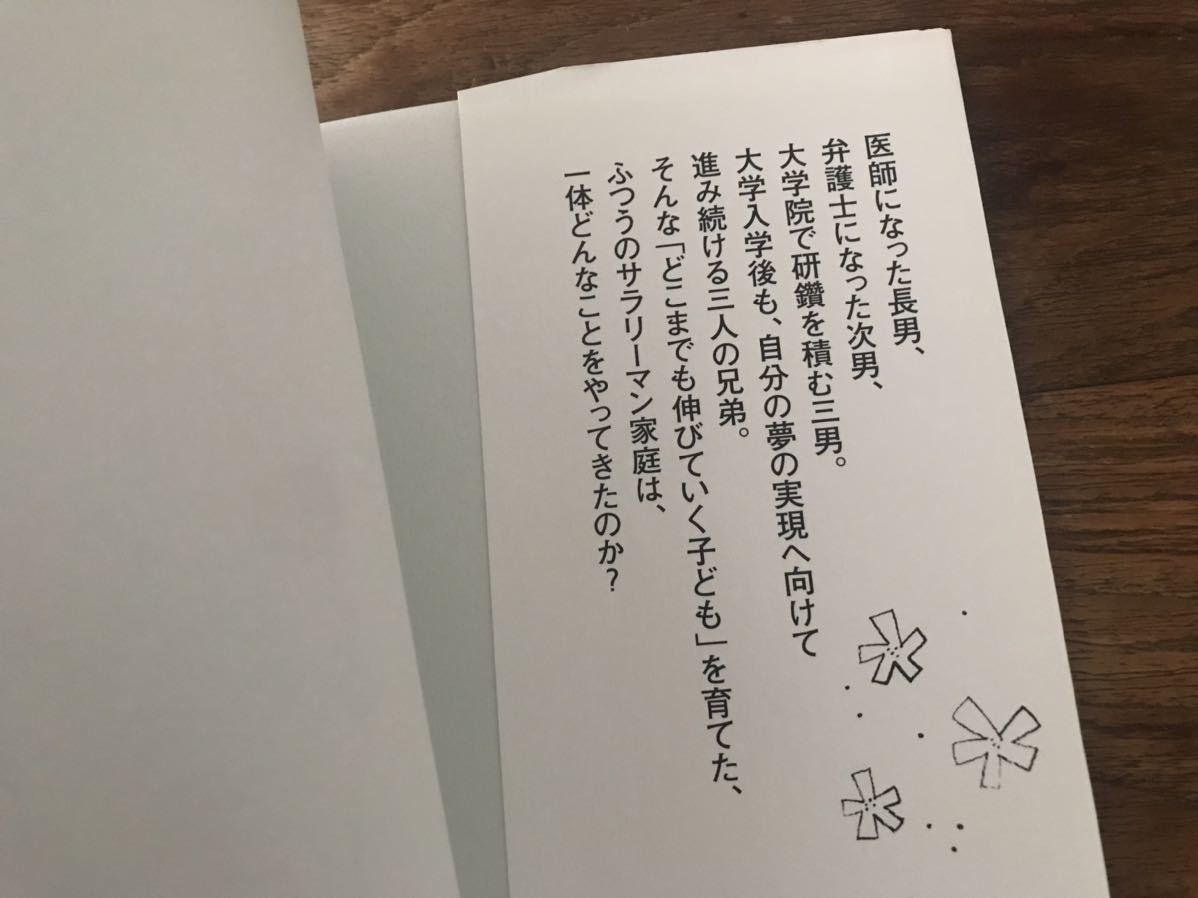 医師になった長男、
弁護士になった次男、
大学院で研鑽を積む三男。
大学入学後も、自分の夢の実現へ向けて
進み続ける三人の兄弟。
そんな「どこまでも伸びていく子ども」を育てた、
ふつうのサラリーマン家庭は、
一体どんなことをやってきたのか?